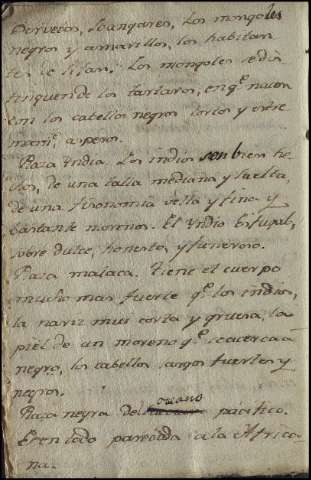 negros y amarillos, los habitan
Los mongoles se dis
tinguen de los tartaros, en qe. nacen
con los cabellos negros cortos y estre
mamte. asperos.
Raza India. Los indios son bien he
chos, de una talla mediana y suelta,
de una fisonomia vella y fina y
bastante morenos. El Yndio es
sobre dulce, honesto, y
Raza malaca. Tiene el cuerpo
mucho mas fuerte qe. los indios,
la nariz mui corta y gruesa, la
piel de un moreno qe. se acerca a
negro, los cabellos largos fuertes y
negros.
Raza negra del occano pacifico.
Es en todo parecida a la Africa
na.